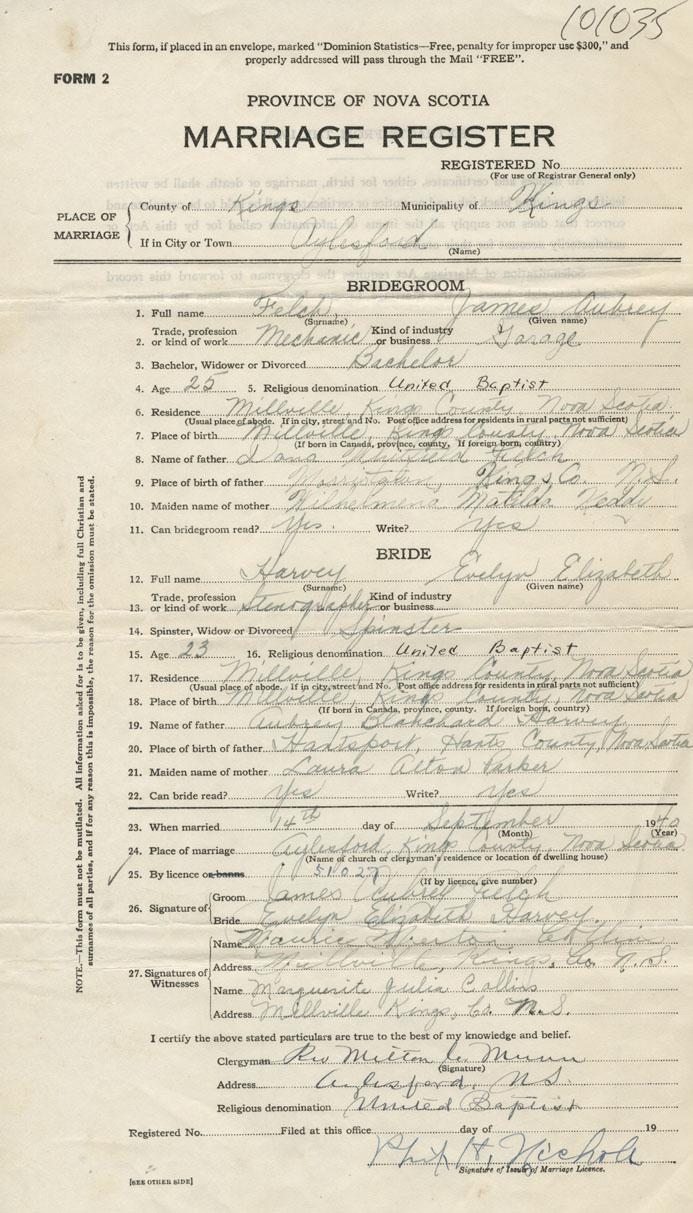 101035
This form, if placed in an envelope, marked "Dominion Statistics—Free, penalty for improper use $300," and
properly addressed will pass through the Mail "FREE".
FORM 2
PROVINCE OF NOVA SCOTIA
MARRIAGE REGISTER
REGISTERED No.
(For use of Registrar General only)
PLACE OF MARRIAGE
County of Kings Municipality of Kings
If in City or Town Aylesford
(Name)
BRIDEGROOM
1. Full name Felch, James Aubrey
(Surname) (Given name)
2. Trade, profession or kind of work Mechanic Kind of industry or business Garage
3. Bachelor, Widower or Divorced Bachelor
4. Age 25 5. Religious denomination United Baptist
6. Residence Millville, King County, Nova Scotia
(Usual place of abode. If in city, street and No. Post office address for residents in rural parts not sufficient)
7. Place of birth Millville, Kings County, Nova Scotia
(If born in Canada, province, county, If foreign born, country)
8. Name of father Whitfield Felch
9. Place of birth of father Kings Co. N.S.
10. Maiden name of mother Wilhelmena Matilda
11. Can bridegroom read? Yes. Write? Yes
BRIDE
12. Full name Harvey Evelyn Elizabeth
(Surname) (Given name)
13. Trade, profession or kind of work Stenographer Kind of industry or business
14. Spinster, Widow or Divorced Spinster
15. Age 23 16. Religious denomination United Baptist
17. Residence Millville, Kings County, Nova Scotia
(Usual place of abode. If in city, street and No. Post office address for residents in rural parts not sufficient)
18. Place of birth Millville, Kings County, Nova Scotia
(If born in Canada, province, county. If foreign born, country)
19. Name of father Aubrey Blanchard Harvey
20. Place of birth of father Hantsport, Hants County, Nova Scotia
21. Maiden name of mother Laura Alton Parker
22. Can bride read? Yes Write? Yes
23. When married 14th day of September 1940
(Month) (Year)
24. Place of marriage Aylesford, Kings County, Nova Scotia
(Name of church or clergyman's residence or location of dwelling house)
25. By licence or banns 51027
(If by licence, give number)
26. Signature of
Groom James Aubrey Felch
Bride Evelyn Elizabeth Harvey.
27. Signatures of Witnesses
Name Maurice
Address Millville, Kings, Co. N.S.
Name Marguerite Julia Collins
Address Millville Kings, Co. N.S.
I certify the above stated particulars are true to the best of my knowledge and belief.
Clergyman Rev Milton C. Munn
(Signature)
Address Aylesford, N.S.
Religious denomination United Baptist
Registered No. Filed at this office day of 19
H. Nichols
Signature of Issuer of Marriage Licence.
[SEE OTHER SIDE]
NOTE.—This form must not be mutilated. All information asked for is to be given, including full Christian and
surnames of all parties, and if for any reason this is impossible, the reason for the omission must be stated.